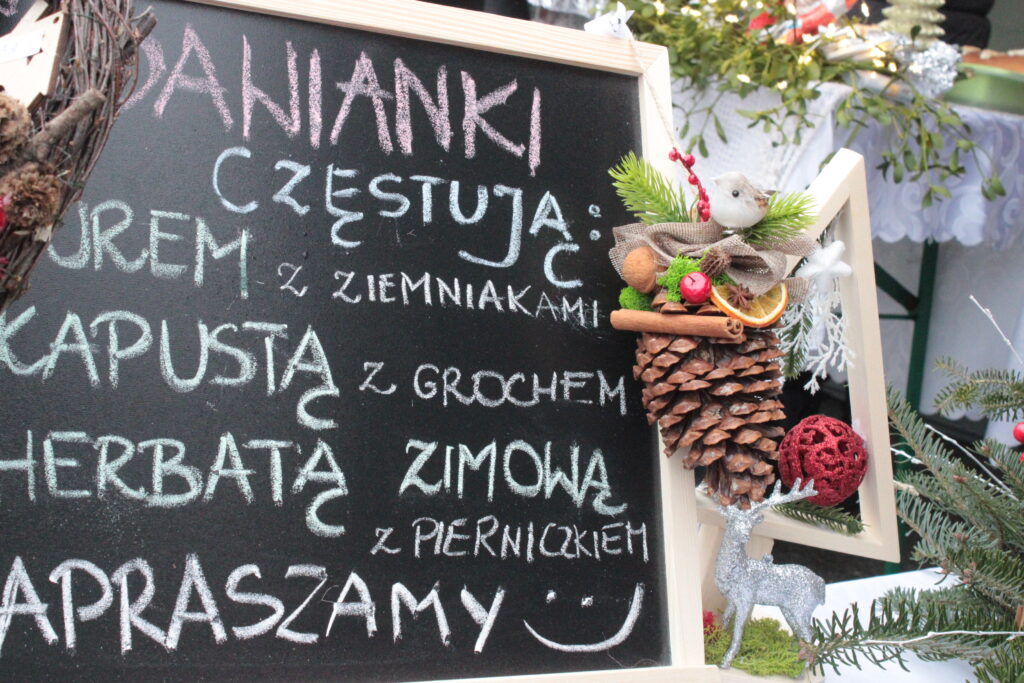 DANIANKI
CZĘSTUJĄ:
UREM Z ZIEMNIAKAMI
KAPUSTĄ Z GROCHEM
HERBATĄ ZIMOWĄ
Z PIERNICZKIEM
APRASZAMY